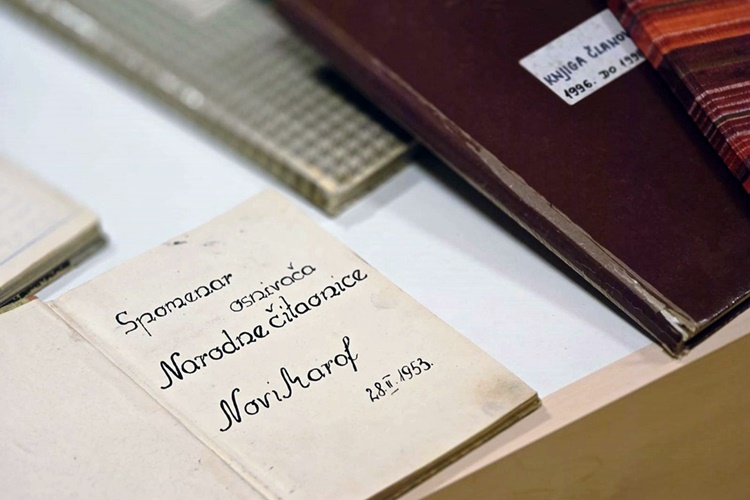 KNJIGA ČLANOV
1996. DO 199
Spomenar
osnivača
Narodne čitaonice
Novi Marof
28.II.1953.